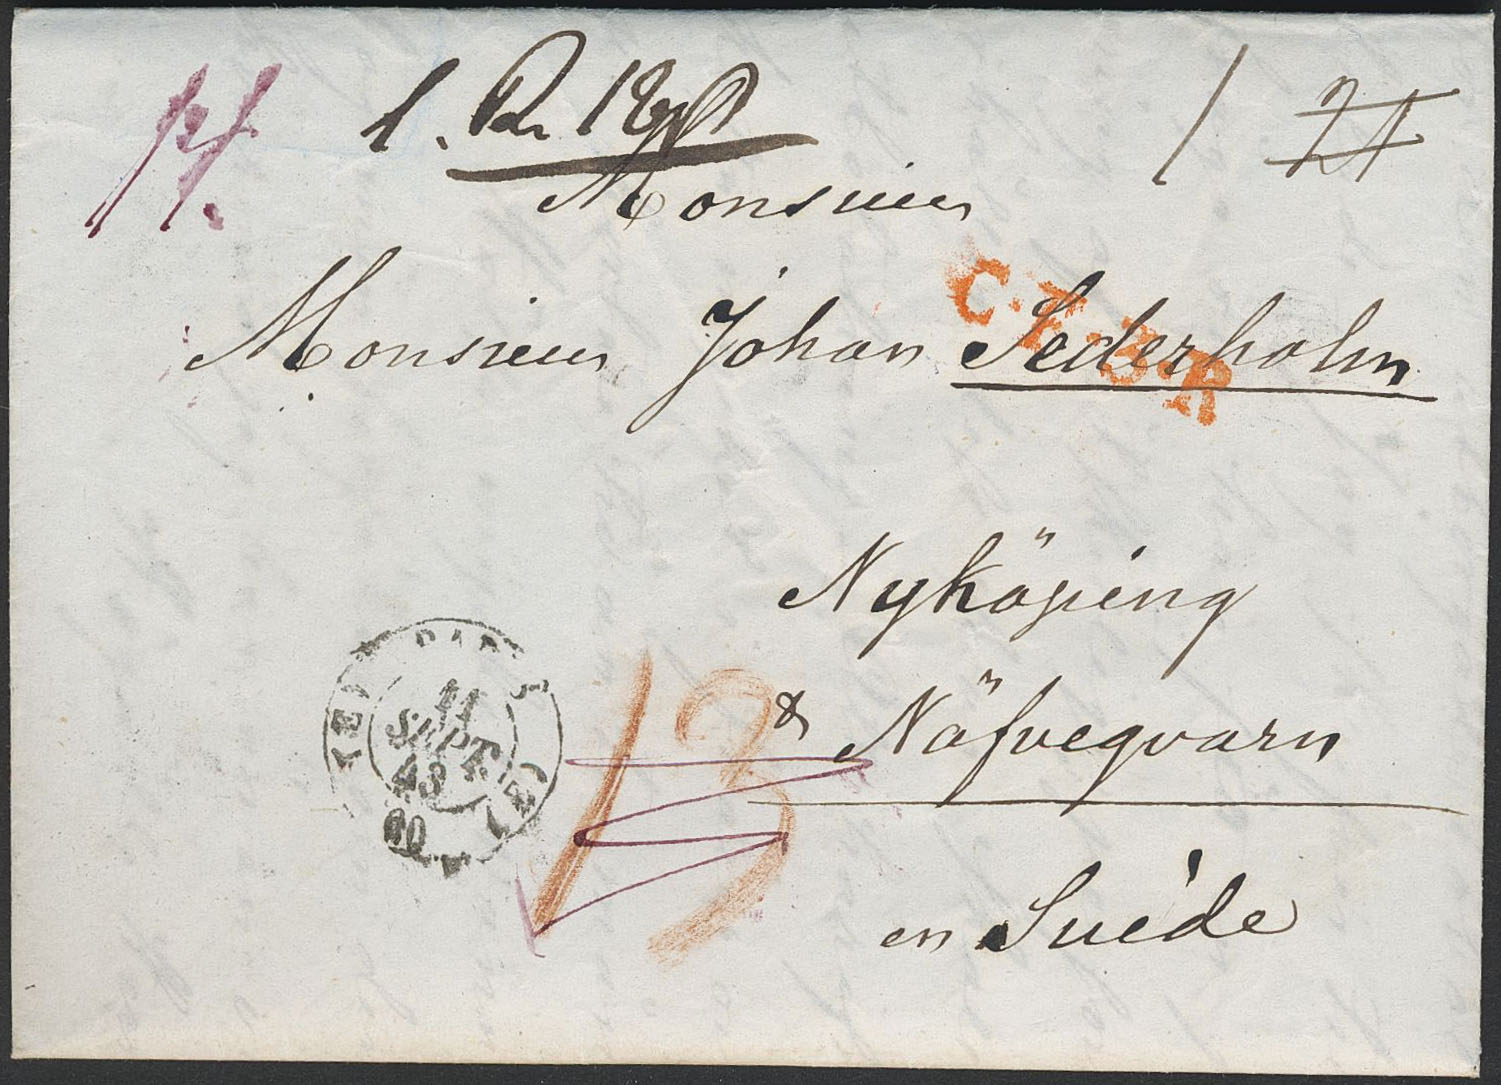 Monsieur
Monsieur Johan Sederholm
C.F.3.R
Nyköping
& Näfveqvarn
en Suède
PARIS
11
SEPT.
43
(60)
13